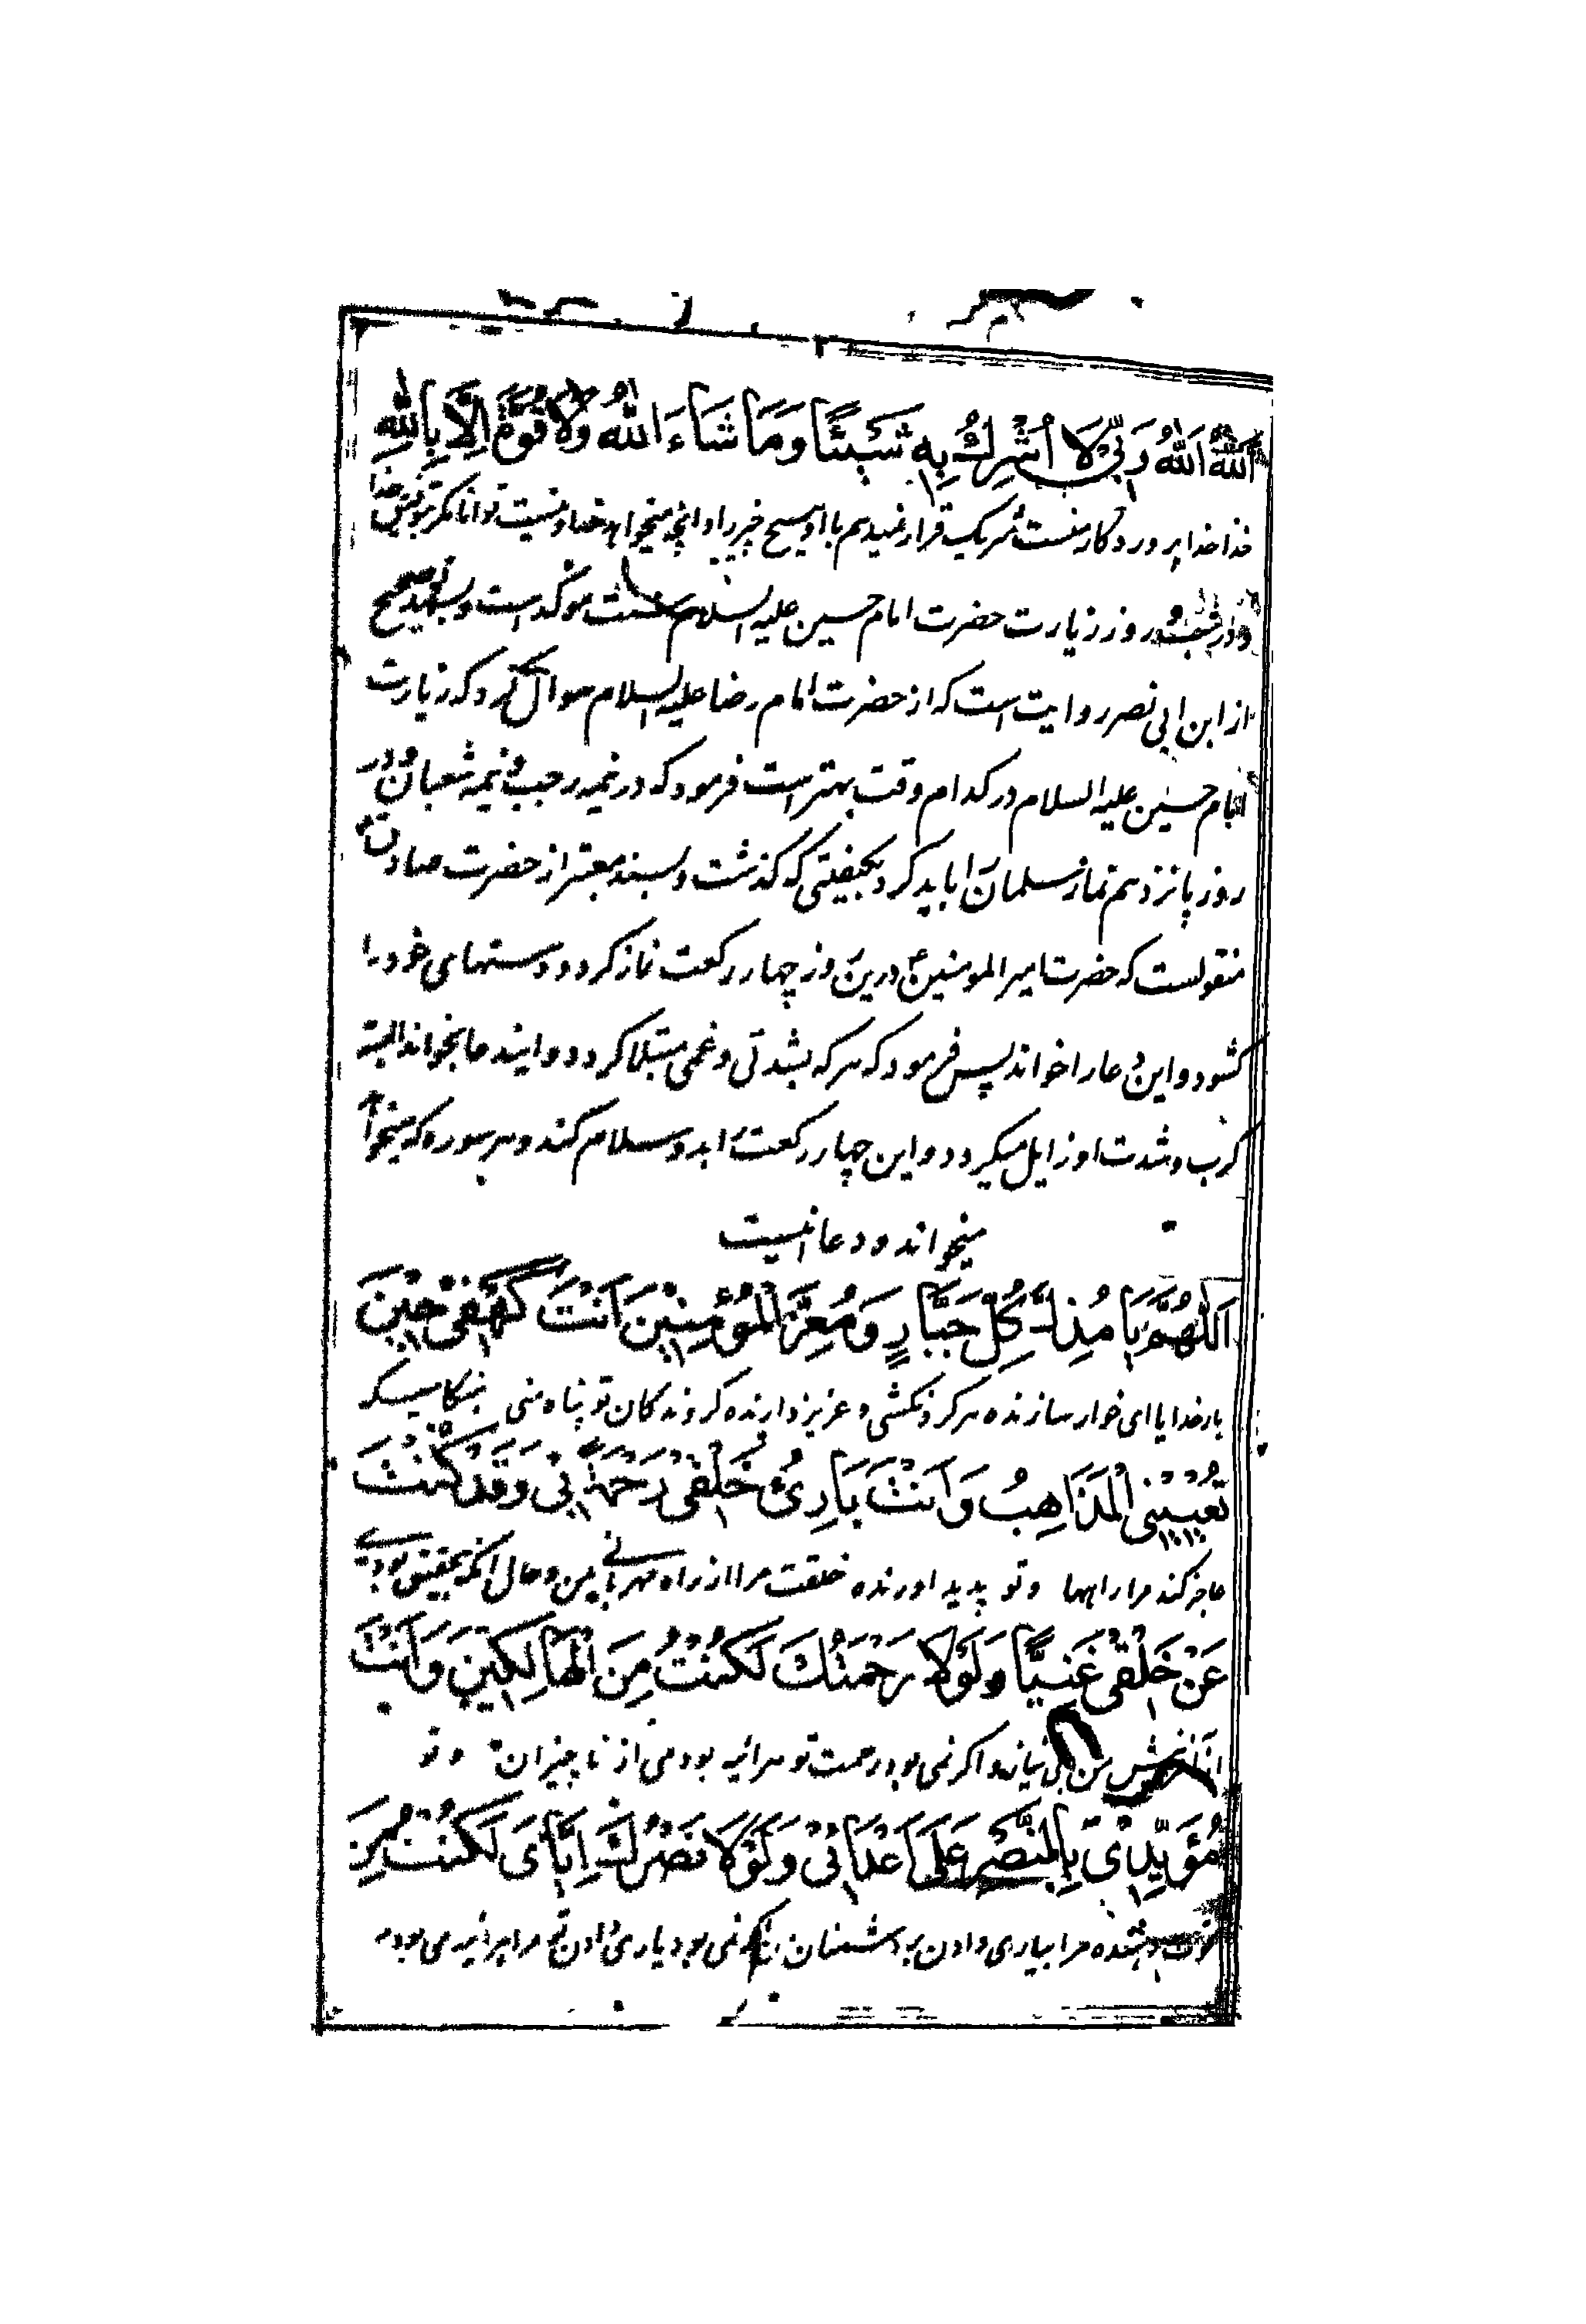 اَللهُ اَللهُ رَبِّی لَا اُشْرِكُ بِهِ شَیْئًا وَمَا شَاءَ اللهُ وَلَا قُوَّةَ اِلَّا بِاللهِ
خدا خدا پروردکار منست شریک قرار نمیدهم با او هیچ چیز را و انچه میخواهد خدا و نیست توانا مکر بتوفیق خدا
روز زیارت حضرت امام حسین علیه السلام سنت موکد است و بسند صحیح
از ابن ابی نصر روایت است که از حضرت امام رضا علیه السلام سوال کرد که زیارت
امام حسین علیه السلام در کدام وقت بهتر است فرمود که در نیمه رجب و نیمه شعبان و در
روز پانزدهم نماز سلمان را باید کرد بکیفیتی که گذشت و بسند معتبر از حضرت صادق
منقولست که حضرت امیر المومنین ع درین روز چهار رکعت نماز کرد و دستهای خود را
کشود و این دعا را خواند پس فرمود که هر که بشدتی و غمی مبتلا کردد و ایندعا بخواند البته
کرب و شدت او زایل میکردد و این چهار رکعت را بدو سلام کند و هر سوره که میخواهد
میخواند و دعا اینست
اَللّٰهُمَّ یَا مُذِلَّ كُلِّ جَبَّارٍ وَمُعِزَّ الْمُؤْمِنِیْنَ اَنْتَ كَهْفِیْ حِیْنَ
بار خدایا ای خوار سازنده هر کردنکشی و عزیز دارنده کروندکان تو پناه منی هنکامیکه
تُعْیِیْنِی الْمَذَاهِبُ وَاَنْتَ بَارِئُ خَلْقِیْ رَحْمَةً بِیْ وَقَدْ كُنْتَ
عاجز کند مرا راهها و تو پدید اورنده خلقت مرا از راه مهربانی بمن و حال انکه بتحقیق بودی
عَنْ خَلْقِیْ غَنِیًّا وَلَوْلَا رَحْمَتُكَ لَكُنْتُ مِنَ الْهَالِكِیْنَ وَاَنْتَ
از افرینش من بی نیاز و اکر نمی بود رحمت تو هرائینه بودمی از ناچیزان و تو
مُؤَیِّدِیْ بِالنَّصْرِ عَلٰی اَعْدَائِیْ وَلَوْلَا نَصْرُكَ اِیَّایَ لَكُنْتُ مِنَ
قوت دهنده مرا بیاری دادن بر دشمنان و اکر نمی بود یاری دادن تو مرا هرائینه می بودم